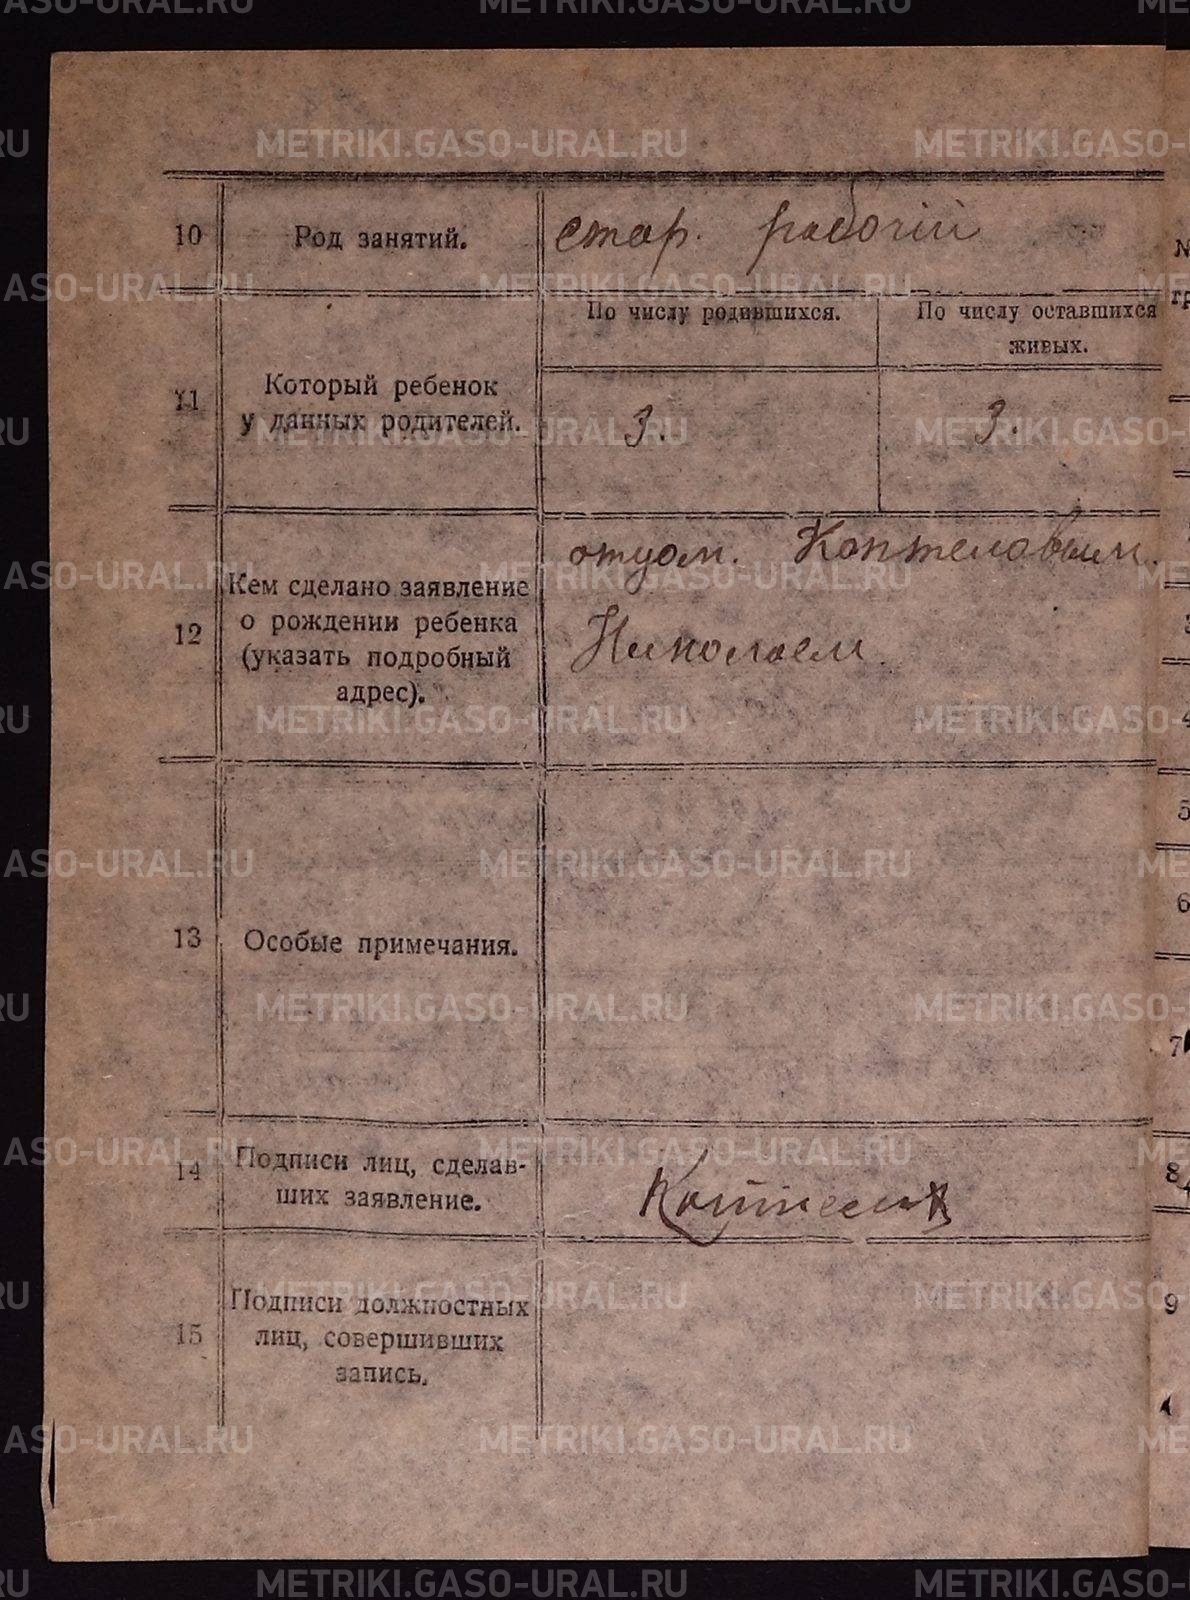 10 Род занятий. стар. рабочий
По числу родившихся. По числу оставшихся
живых.
11 Который ребенок
у данных родителей. 3. 3.
12 Кем сделано заявление
о рождении ребенка
(указать подробный
адрес).
отцом. Коптеловым.
Николаем.
13 Особые примечания.
14 Подписи лиц, сделав-
ших заявление.
15 Подписи должностных
лиц, совершивших
запись.
METRIKI.GASO-URAL.RU
5
6
7
8
9